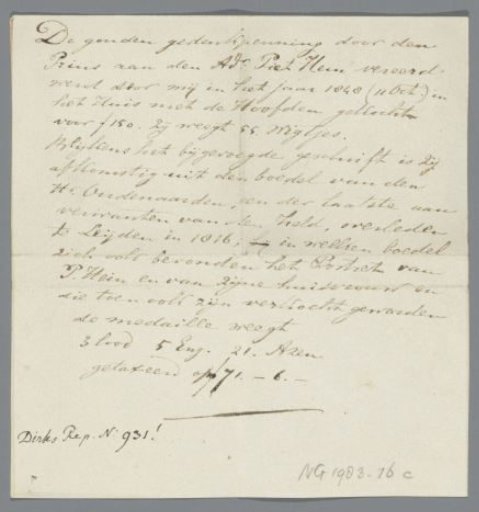 De gouden gedenkpenning door den
Prins aan den Adl. Piet Hein vereerd
werd door mij in het jaar 1840 (11 Oct.) in
het Huis met de Hoofden gekocht
voor ƒ 150. Zij weegt 55 Wigtjes.
Blijkens het bijgevoegde geschrift is zij
afkomstig uit den boedel van den
Hr. Oudenaarden, een der laatste aan
verwanten van den Held, overleden
te Leijden in 1816, in welken boedel
zich ook bevonden het Portret van
P. Hein en van zijne huisvrouw en
die toen ook zijn verkocht geworden
de medaille weegt
3 lood 5 Eng. 21. Azen
getaxeerd op ƒ 71. - 6. -
Dirks Rep. N: 931!
NG 1983-16 c